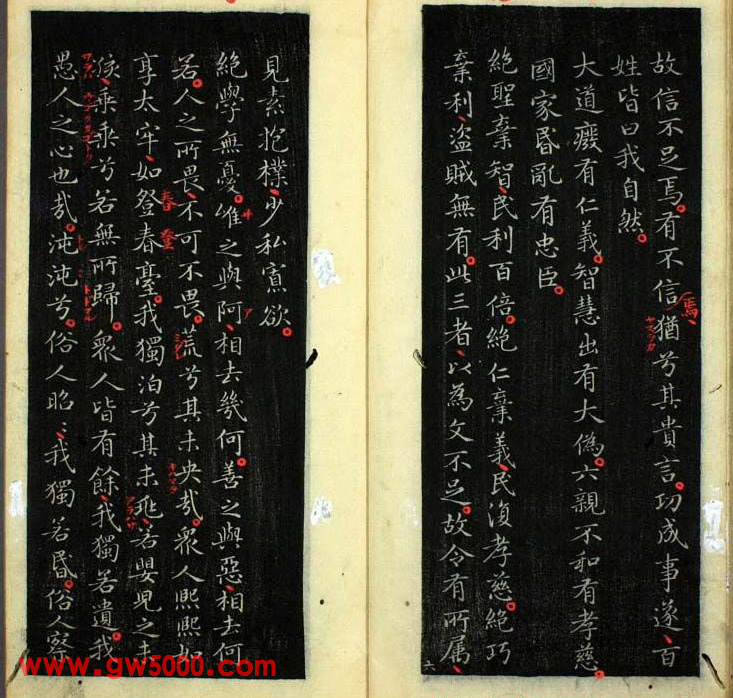 故信不足焉有不信猶兮其貴言功成事遂百
焉
姓皆曰我自然
大道廢有仁義智慧出有大偽六親不和有孝慈
國家昬亂有忠臣
絕聖棄智民利百倍絕仁棄義民復孝慈絕巧
棄利盜賊無有此三者以為文不足故令有所属
六
見素抱樸少私寡欲
絕學無憂唯之與阿相去幾何善之與惡相去何
若人之所畏不可不畏荒兮其未央哉眾人熙熙如
享太牢如登春臺我獨泊兮其未兆若嬰兒之未
春 登
孩乘乘兮若無所歸眾人皆有餘我獨若遺我
愚人之心也哉沌沌兮俗人昭〻我獨若昬俗人察
www.gw5000.com